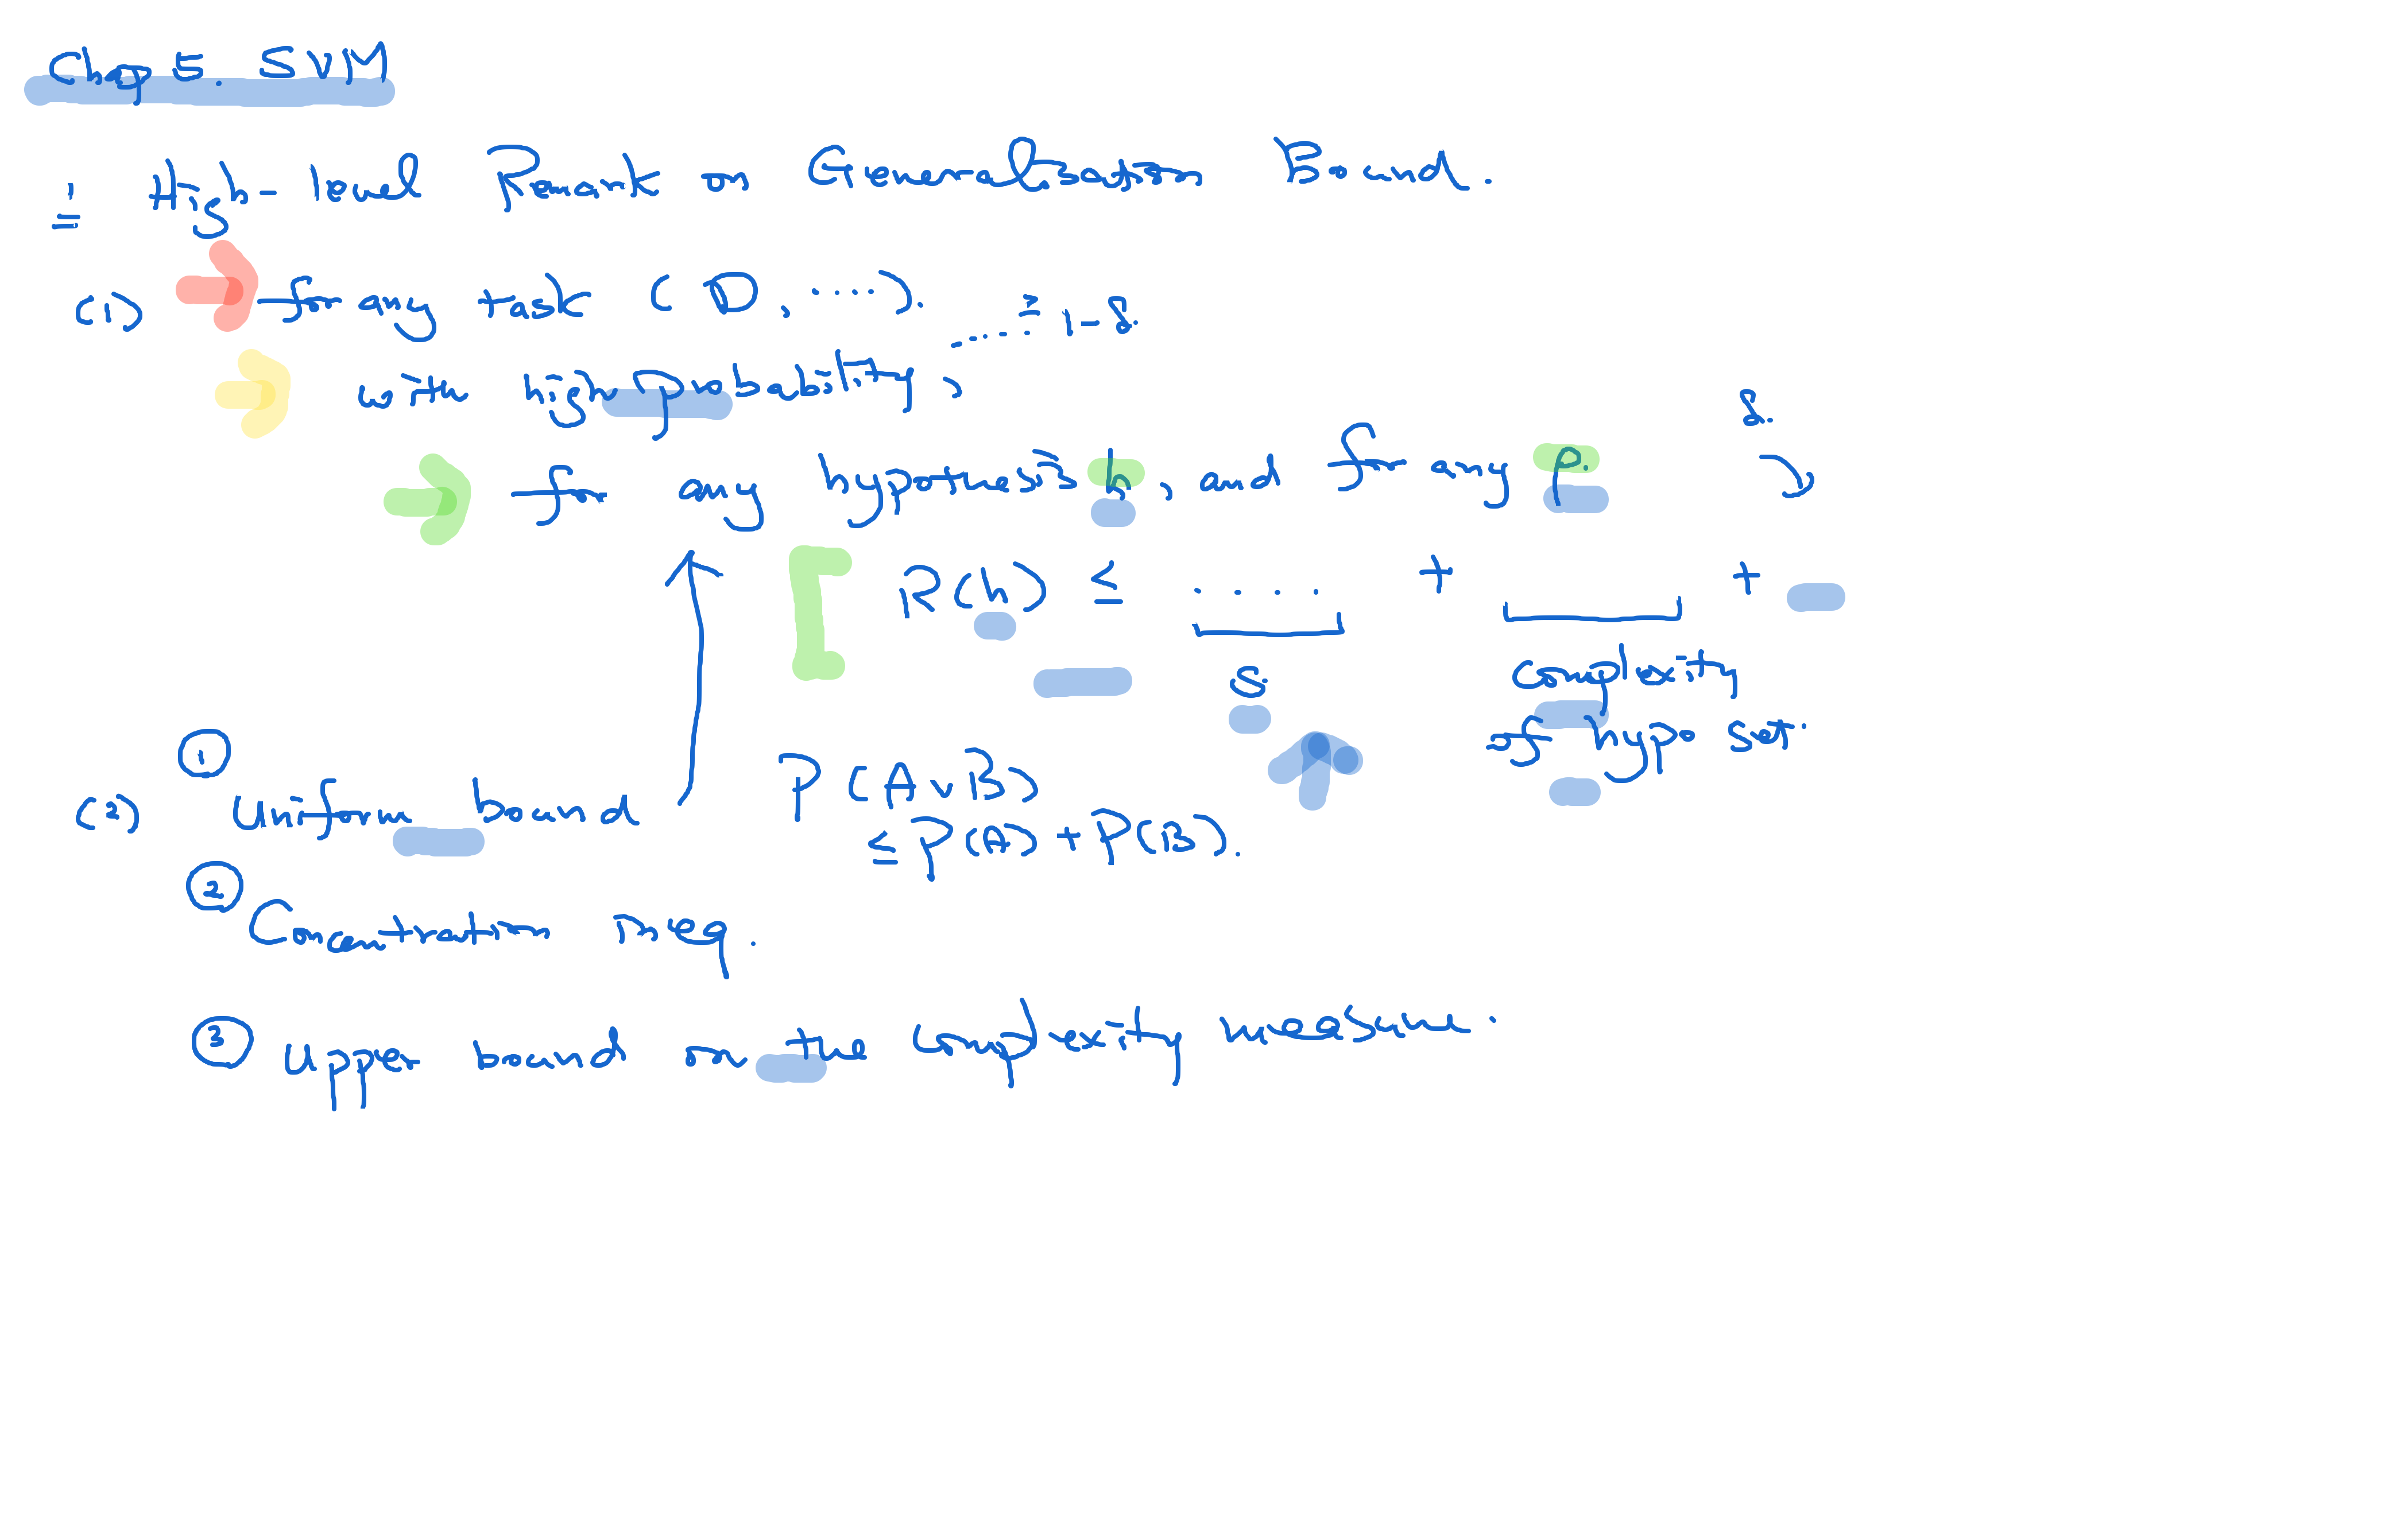 Chap 5. SVM
1. High-level Remark on Generalisation Bound.
(1) for any task (D, ....).
.... ≥ 1-δ.
with high probability,
for any hypothesis h, and for any ρ.
δ.
R(h) ≤ .... + +
S. complexity
of hypo set.
①
(2) Uniform bound P(A∨B)
≤ P(A) + P(B).
②
Concentration ineq.
③ Upper bound on the complexity measure.